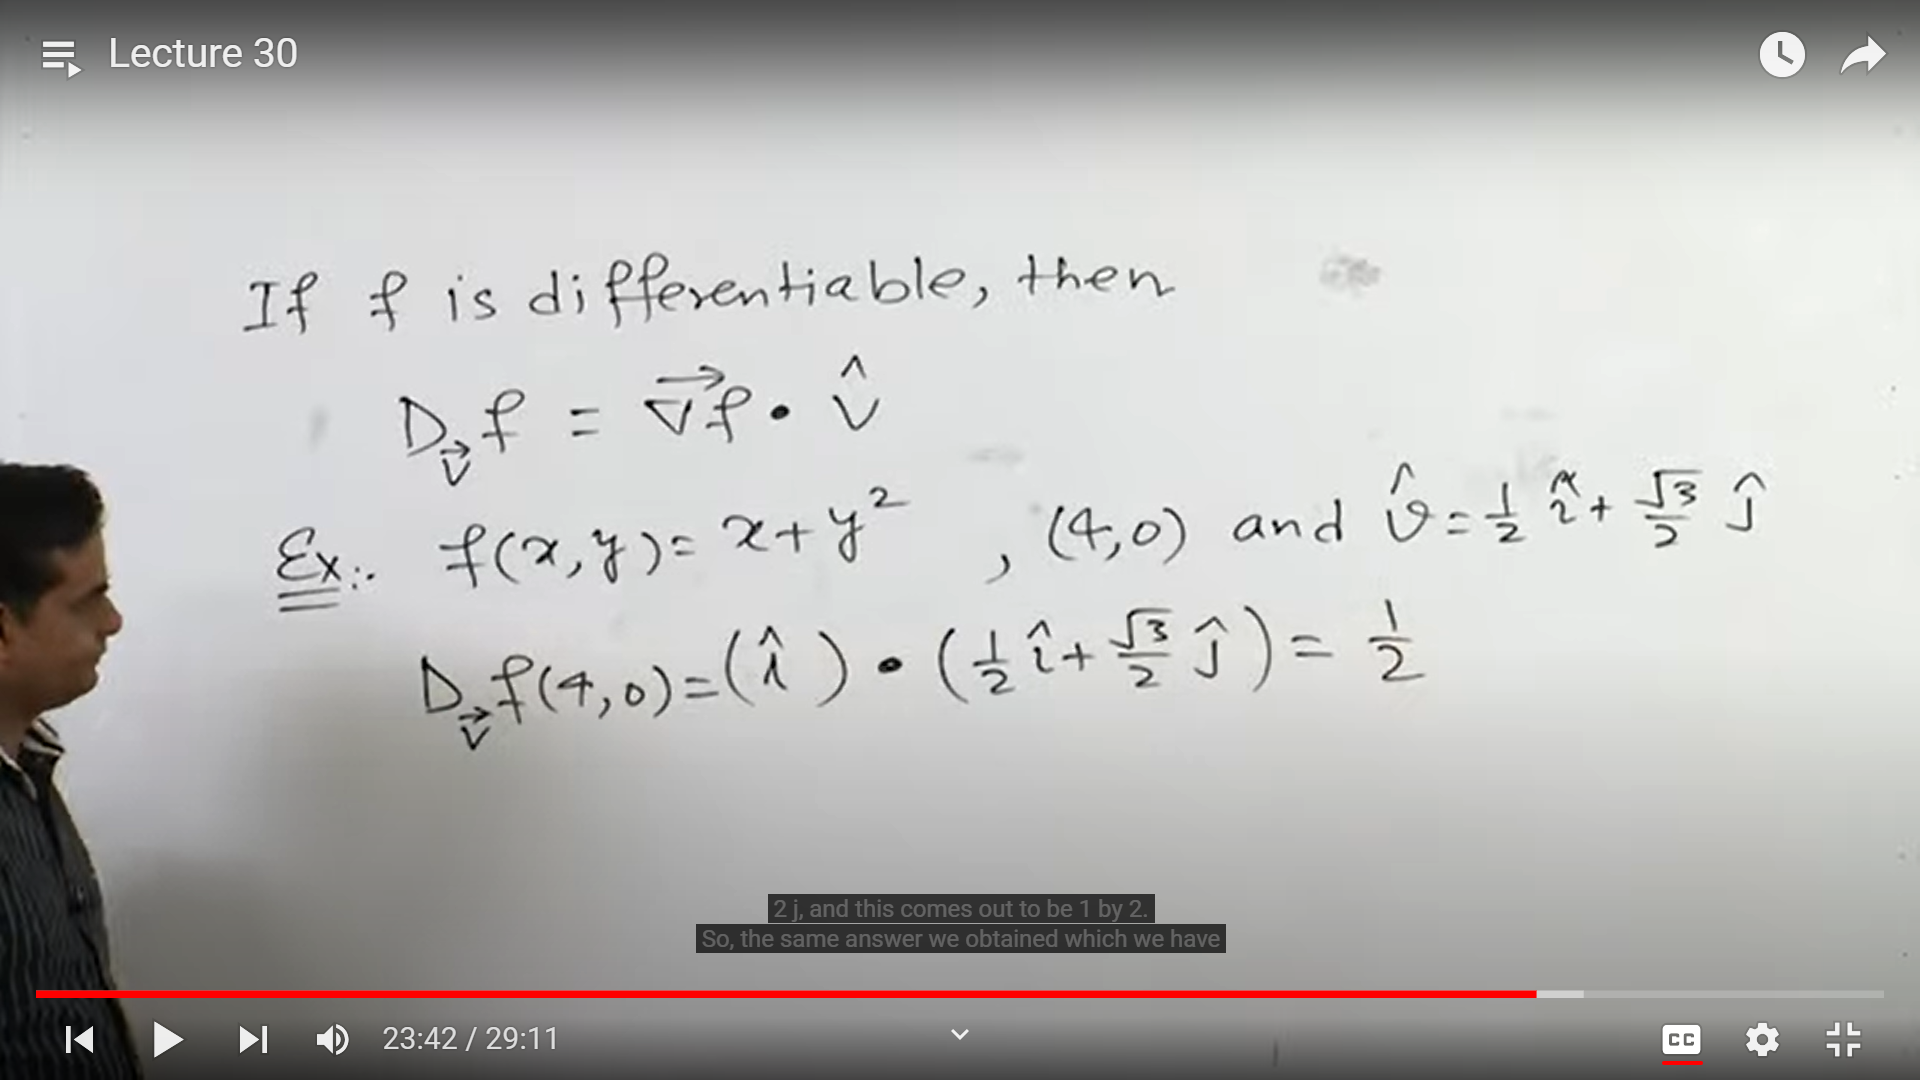 Lecture 30
If f is differentiable, then
D_v⃗ f = ∇⃗f • v̂
Ex:- f(x,y)= x+y² , (4,0) and v̂ = 1/2 î + √3/2 ĵ
D_v⃗ f(4,0)=(î) • (1/2 î + √3/2 ĵ) = 1/2
2 j, and this comes out to be 1 by 2.
So, the same answer we obtained which we have
23:42 / 29:11
CC